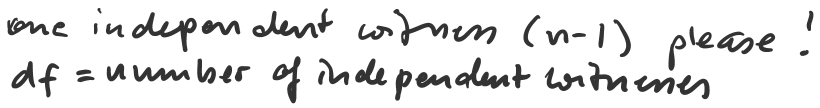 one independent witness (n-1) please!
df = number of independent witnesses